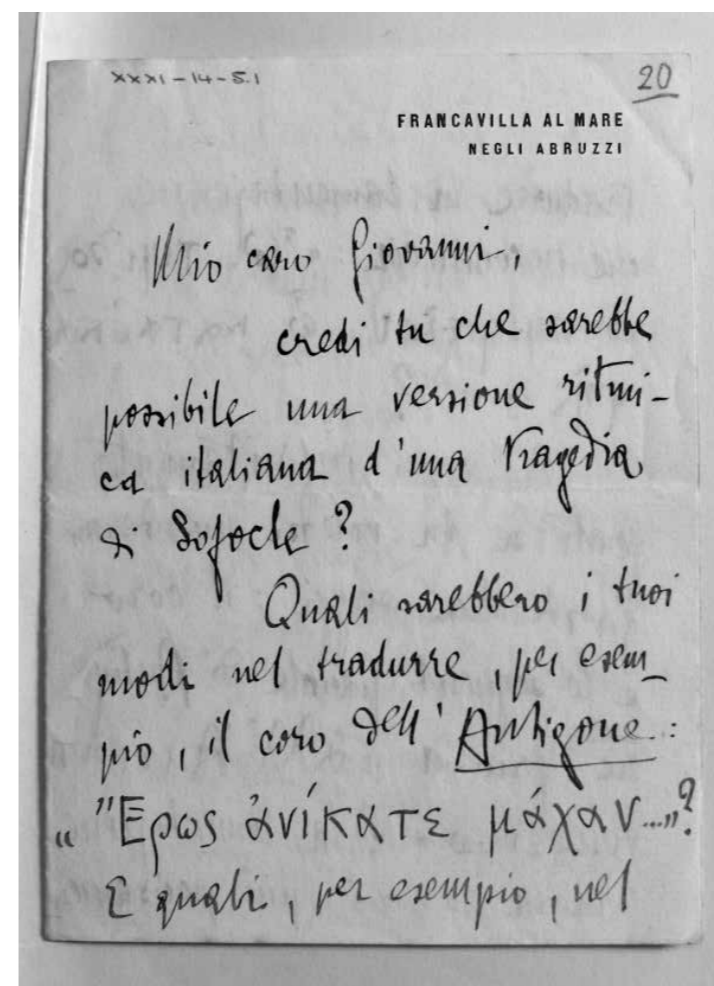 XXXI-14-5.1
20
FRANCAVILLA AL MARE
NEGLI ABRUZZI
Mio caro Giovanni,
credi tu che sarebbe
possibile una versione ritmi-
ca italiana d'una tragedia
di Sofocle?
Quali sarebbero i tuoi
modi nel tradurre, per esem-
pio, il coro dell'Antigone:
„Ἔρως ἀνίκατε μάχαν...„?
E quali, per esempio, nel